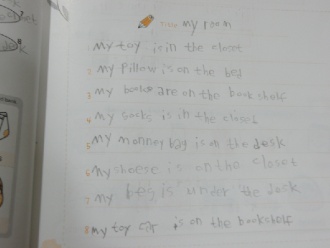 Title my room
1 My toy is in the closet
2 my Pillow is on the bed
3 my books are on the book shelf
4 my socks is in the closet
5 my monney bag is on the desk
6 My shoese is on the closet
7 my beg is under the desk
8 my toy car is on the bookshelf